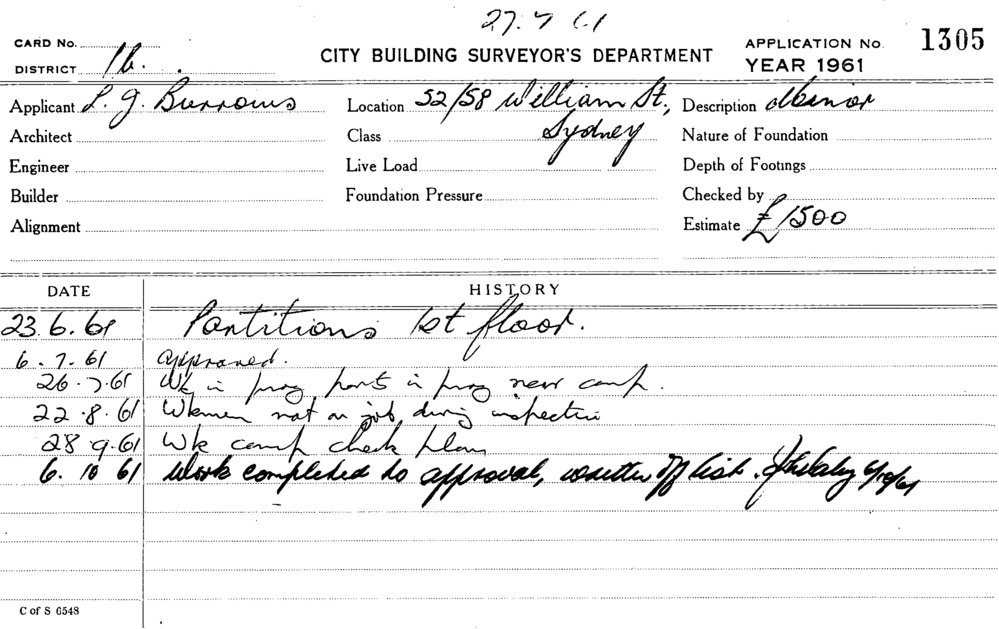 27.7.61
CARD No.
DISTRICT 1b.
CITY BUILDING SURVEYOR'S DEPARTMENT
APPLICATION No. 1305
YEAR 1961
Applicant L. J. Burrows
Location 52/58 William St,
Sydney
Description Minor
Architect
Class
Nature of Foundation
Engineer
Live Load
Depth of Footings
Builder
Foundation Pressure
Checked by
Alignment
Estimate £1500
DATE HISTORY
23.6.61 Partitions 1st floor.
6.7.61 approved.
26.7.61 Wk in prog parts in prog near comp.
22.8.61 Wkmen not on job, during inspection
28.9.61 Wk comp check plan
6.10.61 Work completed to approval, written off list. 6/10/61
C of S 6548